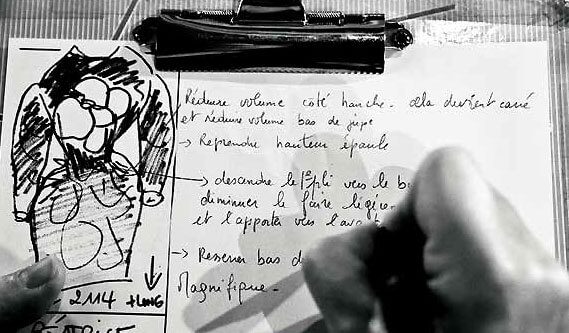 Réduire volume côté hanche. cela devient carré
et réduire volume bas de jupe
→ Reprendre hauteur épaule
→ descendre le 1er pli vers le
diminuer le faire légère
et l'apporter vers l'ava
→ Resserrer bas d
Magnifique.
2114 +LONG
BÉATRICE